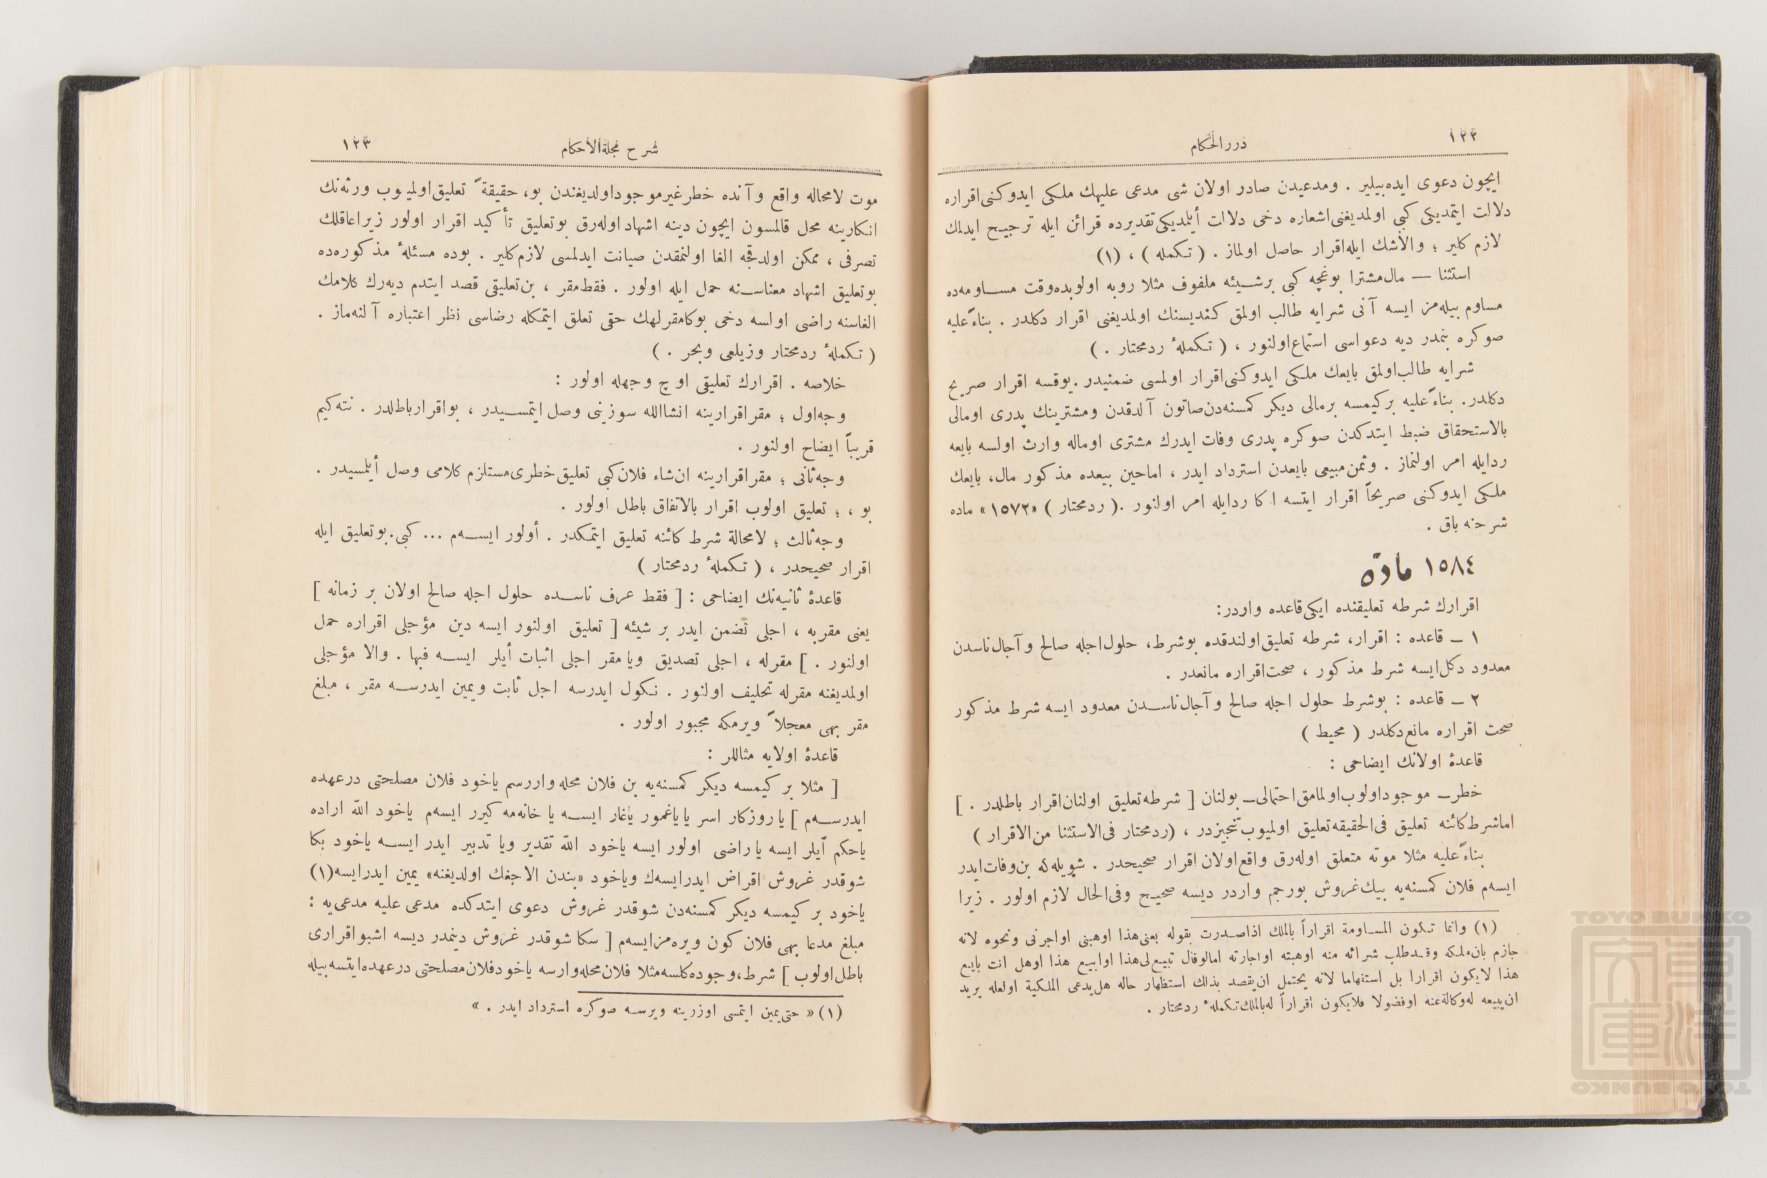 ١٢٢
دررالحكام
ايچون دعوى ايده‌بيلير . ومدعيدن صادر اولان شى مدعى عليهك ملكى ايدوكنى اقراره
دلالت ايتمديكى كبى اولمديغنى اشعاره دخى دلالت أيلمديكى تقديرده قرائن ايله ترجيح ايدلمك
لازم كلير ؛ والاشك ايله اقرار حاصل اولماز . ( تكمله ) ، (١)
استثنا — مال مشترا بوغچه كبى برشيئه ملفوف مثلا روبه اولوبده وقت مساومه‌ده
مساوم بيله‌مز ايسه آنى شرايه طالب اولمق كنديسنك اولمديغنى اقرار دكلدر . بناءً عليه
صوكره بنمدر ديه دعواسى استماع اولنور ، ( تكملهٔ ردمحتار . )
شرايه طالب اولمق بايعك ملكى ايدوكنى اقرار اولمسى ضمنيدر . يوقسه اقرار صريح
دكلدر. بناءً عليه بركيمسه برمالى ديكر كمسنه‌دن صاتون آلدقدن ومشترينك پدرى اومالى
بالاستحقاق ضبط ايتدكدن صوكره پدرى وفات ايدرك مشترى اوماله وارث اولسه بايعه
ردايله امر اولنماز . وثمن مبيعى بايعدن استرداد ايدر ، اماحين بيعده مذكور مال، بايعك
ملكى ايدوكنى صريحاً اقرار ايتسه اكا ردايله امر اولنور .( ردمحتار ) «١٥٧٢» ماده
شرحنه باق .
١٥٨٤ مادّه
اقرارك شرطه تعليقنده ايكى قاعده واردر:
١ ــ قاعده : اقرار، شرطه تعليق اولندقده بوشرط، حلول اجله صالح وآجال ناسدن
معدود دكل ايسه شرط مذكور ، صحت اقراره مانعدر .
٢ ــ قاعده : بوشرط حلول اجله صالح وآجال ناسدن معدود ايسه شرط مذكور
صحت اقراره مانع دكلدر ( محيط )
قاعدهٔ اولانك ايضاحى :
خطر ــ موجود اولوب اولمامق احتمالى ــ بولنان [ شرطه تعليق اولنان اقرار باطلدر . ]
اماشرط كائنه تعليق فى الحقيقه تعليق اولميوب تنجيزدر ، (ردمحتار فى الاستثنا من الاقرار )
بناءً عليه مثلا موته متعلق اوله‌رق واقع اولان اقرار صحيحدر . شويله كه بن وفات ايدر
ايسه‌م فلان كمسنه‌يه بيك غروش بورجم واردر ديسه صحيح وفى الحال لازم اولور . زيرا
(١) وانما تكون المساومة اقراراً بالملك اذاصدرت بقوله بعنى هذا اوهبنى اواجرنى ونحوه لانه
جازم بان ملكه وقدطلب شرائه منه اوهبته اواجارته امالوقال تبيع لى هذا اوابيع هذا اوهل انت بايع
هذا لايكون اقرارا بل استفهاما لانه يحتمل ان يقصد بذلك استظهار حاله هل يدعى الملكية اولعله يريد
ان يبيعه له وكالة عنه اوفضولا فلايكون اقراراً له بالملك تكملهٔ ردمحتار .
شرح مجلةالاحكام
١٢٣
موت لامحاله واقع وآنده خطر غيرموجود اولديغندن بو، حقيقةً تعليق اولميوب ورثه‌نك
انكارينه محل قالمسون ايچون دينه اشهاد اوله‌رق بوتعليق تأكيد اقرار اولور زيرا عاقلك
تصرفى ، ممكن اولدقجه الغا اولنمقدن صيانت ايدلمسى لازم كلير . بوده مسئلهٔ مذكوره‌ده
بوتعليق اشهاد معناسنه حمل ايله اولور . فقط مقر ، بن تعليقى قصد ايتدم ديه‌رك كلامك
الغاسنه راضى اولسه دخى بوكا مقرلهك حقى تعلق ايتمكله رضاسى نظر اعتباره آلنه‌ماز .
( تكملهٔ ردمحتار وزيلعى وبحر . )
خلاصه . اقرارك تعليقى اوچ وجهله اولور :
وجه اول ؛ مقراقرارينه انشاالله سوزينى وصل ايتمسيدر ، بواقرار باطلدر . نته‌كيم
قريباً ايضاح اولنور .
وجه ثانى ؛ مقراقرارينه ان شاء فلان كبى تعليق خطرى مستلزم كلامى وصل أيلمسيدر .
بو ، ؛ تعليق اولوب اقرار بالاتفاق باطل اولور .
وجه ثالث ؛ لامحالة شرط كائنه تعليق ايتمكدر . أولور ايسه‌م ... كبى. بوتعليق ايله
اقرار صحيحدر ، ( تكملهٔ ردمحتار )
قاعدهٔ ثانيه‌نك ايضاحى : [ فقط عرف ناسده حلول اجله صالح اولان بر زمانه ]
يعنى مقربه ، اجلى تضمن ايدر بر شيئه [ تعليق اولنور ايسه دين مؤجلى اقراره حمل
اولنور . ] مقرله ، اجلى تصديق ويا مقر اجلى اثبات أيلر ايسه فبها . والا مؤجلى
اولمديغنه مقرله تحليف اولنور . نكول ايدرسه اجل ثابت ويمين ايدرسه مقر ، مبلغ
مقر بهى معجلاً ويرمكه مجبور اولور .
قاعدهٔ اولايه مثاللر :
[ مثلا بر كيمسه ديكر كمسنه‌يه بن فلان محله واررسم ياخود فلان مصلحتى درعهده
ايدرسه‌م ] يا روزكار اسر يا ياغمور ياغار ايسه يا خانه‌مه كيرر ايسه‌م ياخود الله اراده
ياحكم أيلر ايسه يا راضى اولور ايسه ياخود الله تقدير ويا تدبير ايدر ايسه ياخود بكا
شوقدر غروش اقراض ايدرايسه‌ك وياخود «بندن الاجغك اولديغنه» يمين ايدرايسه(١)
ياخود بر كيمسه ديكر كمسنه‌دن شوقدر غروش دعوى ايتدكده مدعى عليه مدعى‌يه :
مبلغ مدعا بهى فلان كون ويره‌مز ايسه‌م [ سكا شوقدر غروش دينمدر ديسه اشبو اقرارى
باطل اولوب ] شرط، وجوده كلسه مثلا فلان محله وارسه ياخود فلان مصلحتى درعهده ايتسه بيله
(١) « حتى يمين ايتمسى اوزرينه ويرسه صوكره استرداد ايدر . »